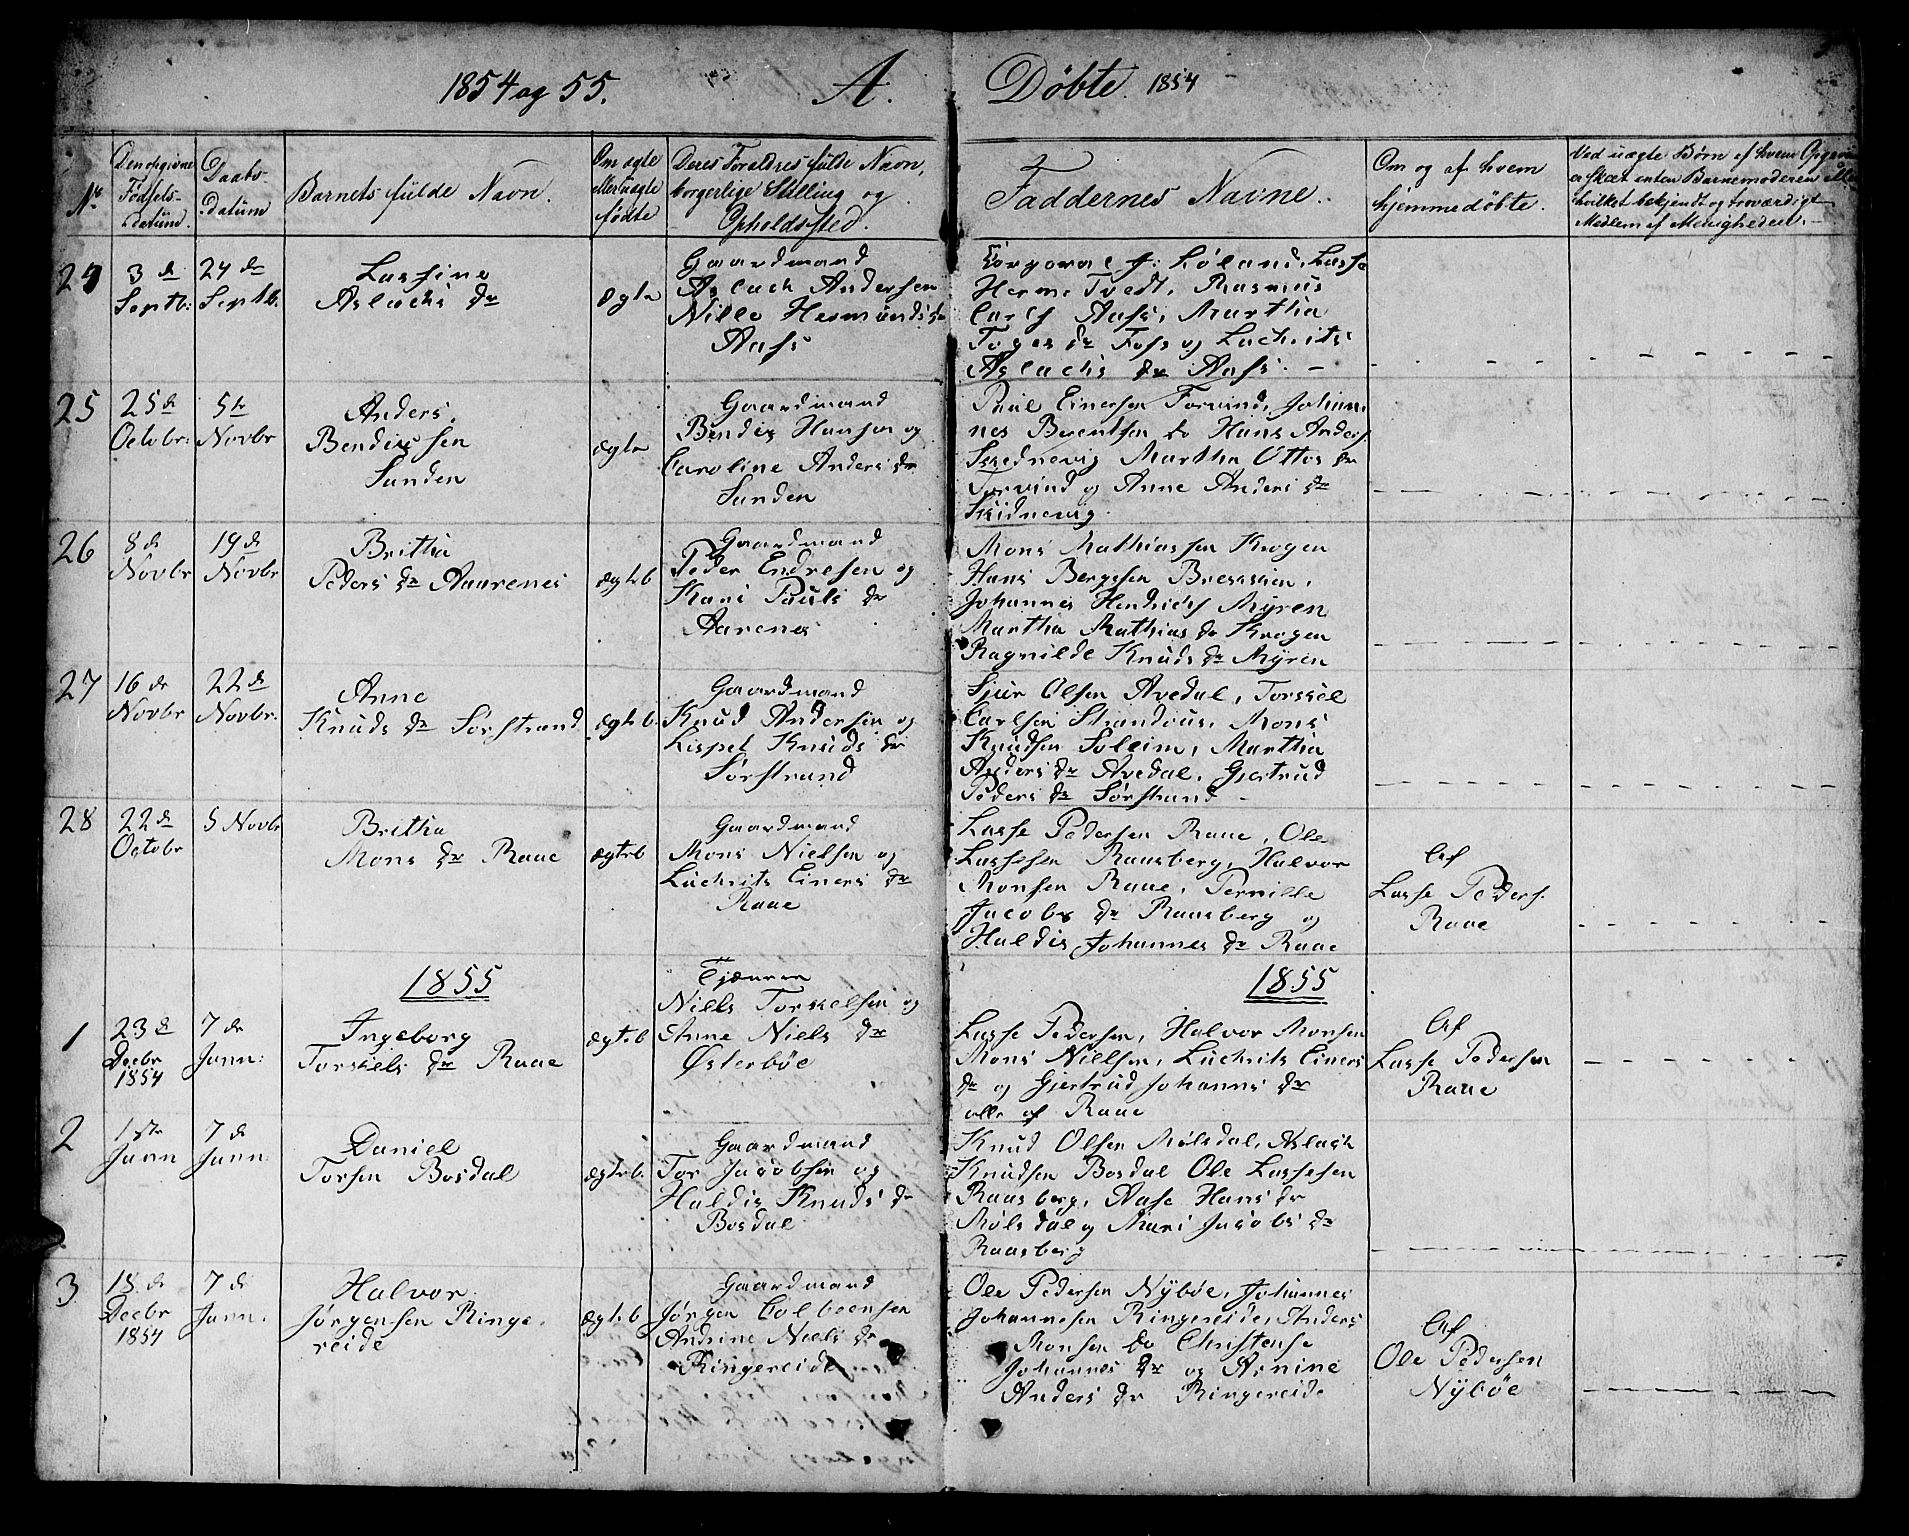 1854 og 55. A. Døbte 1854
No
Den opgivne Fødsels-datum.
Daabs-datum
Barnets fulde Navn.
Om ægte eller uægte fødte
Deres Foraldres fulde Navn, borgerlige Stilling og Opholdssted.
Faddernes Navne.
Om og af hvem hjemmedøbte.
Ved uægte Børn af hvem Opgaven er skeet enten Barnemoderen eller hvilket bekjendt og troværdigt Medlem af Menigheden.
24
3 de
Septb:
24 de
Septb.
Lassine
Aslachs dr
ægte
Gaardmand
Aslach Andersen
Nille Hermunds dr
Aafs
Corporal J. Løland, Lasse
Herm. Tvedt, Rasmus
Carls Aafs, Martha
Toges dr Foss og Luchrits
Aslachs dr Aafs. –
25
25 de
Octobr:
5te
Novbr
Anders
Bendixsen
Sanden
ægte
Gaardmand
Bendix Hansen og
Caroline Anders dr
Sanden
Paul Einersen Torvind, Johan-
nes Berentsen do Hans Anders.
Skednevig Martha Ottos dr
Torvind og Anne Anders dr
Skidnevig.
26
8 de
Novbr
19 de
Novbr
Britha
Peders dr Aaarenes
ægteb
Gaardmand
Peder Endresen og
Kari Pauls dr
Aarenes
Mons Mathiassen Krogen
Hans Bergesen
Johannes Hendrichs Myren
Martha Mathias dr Krogen
Ragnilde Knuds dr Myren
27
16 de
Novbr
22 de
Novbr.
Anne
Knuds dr Sørstrand
ægteb.
Gaardmand
Knud Andersen og
Lispet Knuds dr
Sørstrand
Sjur Olsen Avedal, Torskel
Carlsen Strandous, Mons
Knudsen Soleim, Martha
Anders dr Avedal, Gjertrud
Peders dr Sørstrand –
28
22 de
Octobr
5 Novbr
Britha
Mons dr Raae
ægteb
Gaardmand
Mons Nielsen og
Luchrits Einers dr
Raae
Lasse Pedersen Raae, Ole
Lassesen Raasberg, Halvor
Monsen Raae, Pernille
Jacobs dr Raasberg og
Haldis Johannes dr Raae
Af
Lasse Peders.
Raae
1855
1855
1
23 de
Decbr
1854
7 de
Jann:
Ingeborg
Torskels dr Raae
ægteb
Tjænere
Niels Torskelsen og
Anne Niels dr
Østerbøe
Lasse Pedersen, Halvor Monsen
Mons Nielsen, Luchrits Einers
dr og Gjertrud Johanns dr
alle af Raae
Af
Lasse Pedersen
Raae
2
1ste
Jann
7 de
Jann.
Daniel
Torsen Bosdal
ægteb.
Gaardmand
Tor Jacobsen og
Haldis Knuds dr
Bosdal
Knud Olsen Mølsdal, Aslach
Knudsen Bosdal Ole Lassesen
Raasberg, Aase Hans dr
Mølsdal og Mari Jacobs dr
Raasberg
3
18 de
Decbr
1854
7 de
Jann.
Halvor
Jørgensen Ringe
reide
ægteb
Gaardmand
Jørgen Colbeensen
Andrine Niels dr
Ringereide
Ole Pedersen Nybøe, Johannes
Johannesen Ringereide, Anders
Monsen do Christense
Johannes dr og Arnine
Anders dr Ringereide
Af
Ole Pedersen
Nybøe